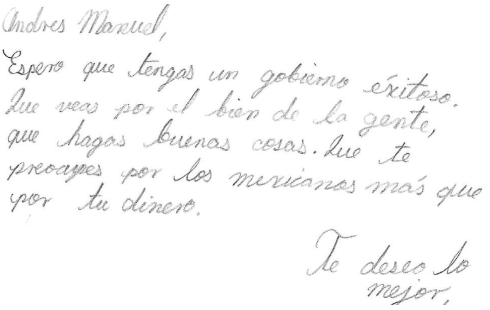 Andres Manuel,
Espero que tengas un gobierno éxitoso.
Que veas por el bien de la gente,
que hagas buenas cosas. Que te
preocupes por los mexicanos más que
por tu dinero.
Te deseo lo
mejor,